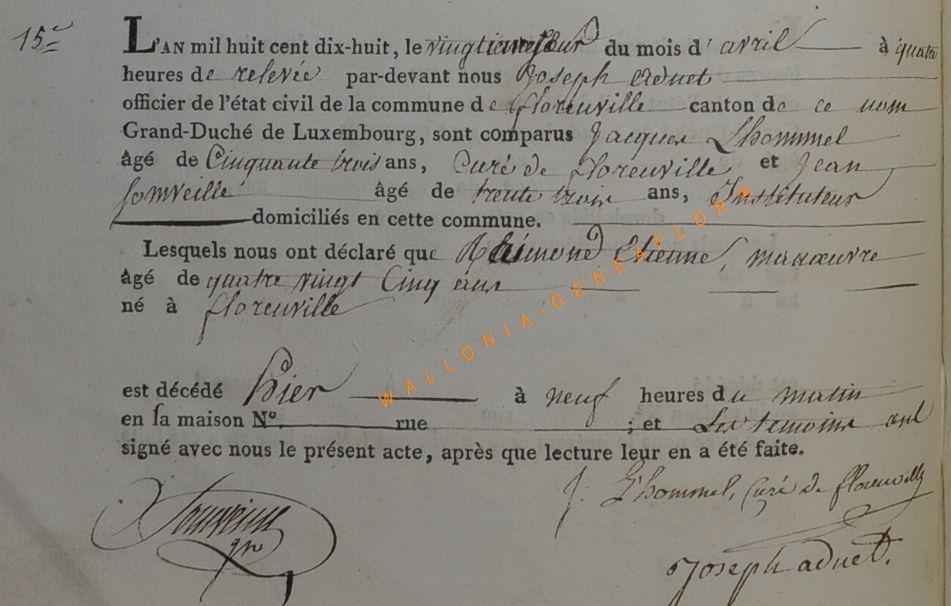 15e
L'AN mil huit cent dix-huit, le vingtieme jour du mois d'avril à quatre
heures de relevée par-devant nous Joseph Aduet
officier de l'état civil de la commune de florenville canton de ce nom
Grand-Duché de Luxembourg, sont comparus Jacques Lhommel
âgé de Cinquante trois ans, Curé de florenville et Jean
âgé de trente trois ans, Instituteur
domiciliés en cette commune.
Lesquels nous ont déclaré que Raimond Etienne, manoeuvre
âgé de quatre vingt Cinq ans
né à florenville
est décédé hier à neuf heures du matin
en sa maison N°. rue ; et Les temoins ont
signé avec nous le présent acte, après que lecture leur en a été faite.
J. L'hommel, Curé de florenville
Joseph aduet.
WALLONIA-GENEAFLOR